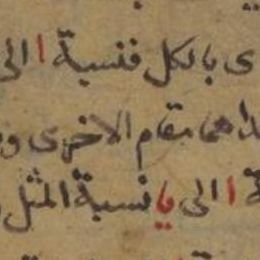 ى بالكل فنسبة ا الى
مقام الاخرى و
ا الى يا نسبة المثل